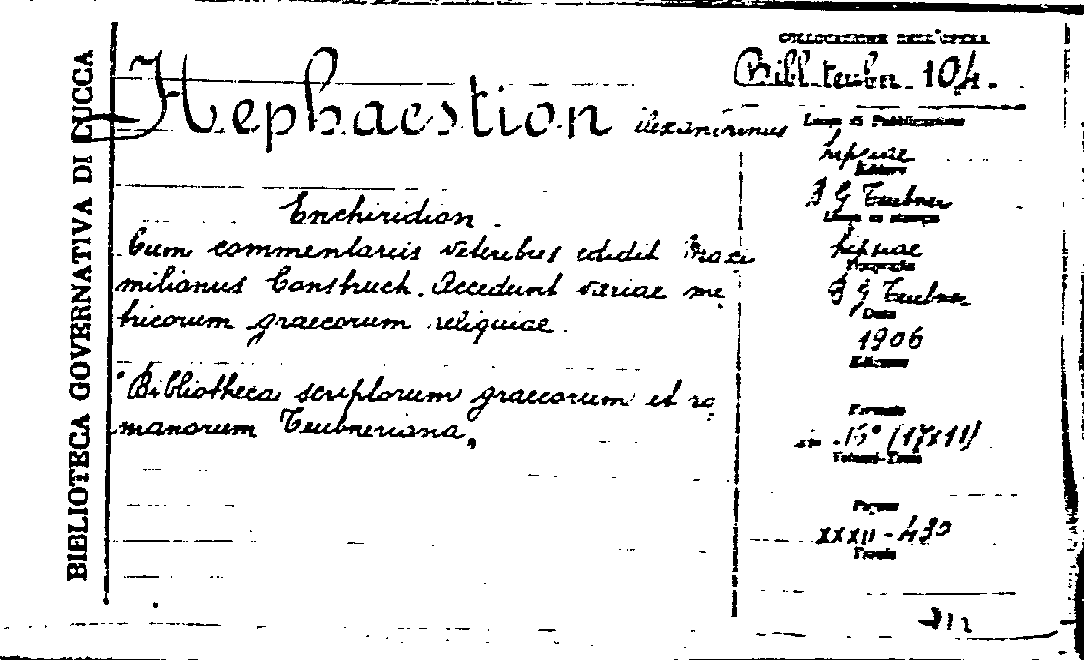 BIBLIOTECA GOVERNATIVA DI LUCCA
COLLOCAZIONE DELL'OPERA
Bibl. teubn. 104.
Hephaestion alexandrinus
Luogo di Pubblicazione
Lipsiae
Editore
B G Teubner
Luogo di stampa
Lipsiae
Tipografo
B G Teubner
Data
1906
Edizione
Formato
in 16° (17x11)
Volumi-Tomi
Pagine
XXXII - 430
Tavole
Enchiridion.
Cum commentariis veteribus edidit Maxi
milianus Consbruch. Accedunt variae me
tricorum graecorum reliquiae.
"Bibliotheca scriptorum graecorum et ro
manorum Teubneriana„